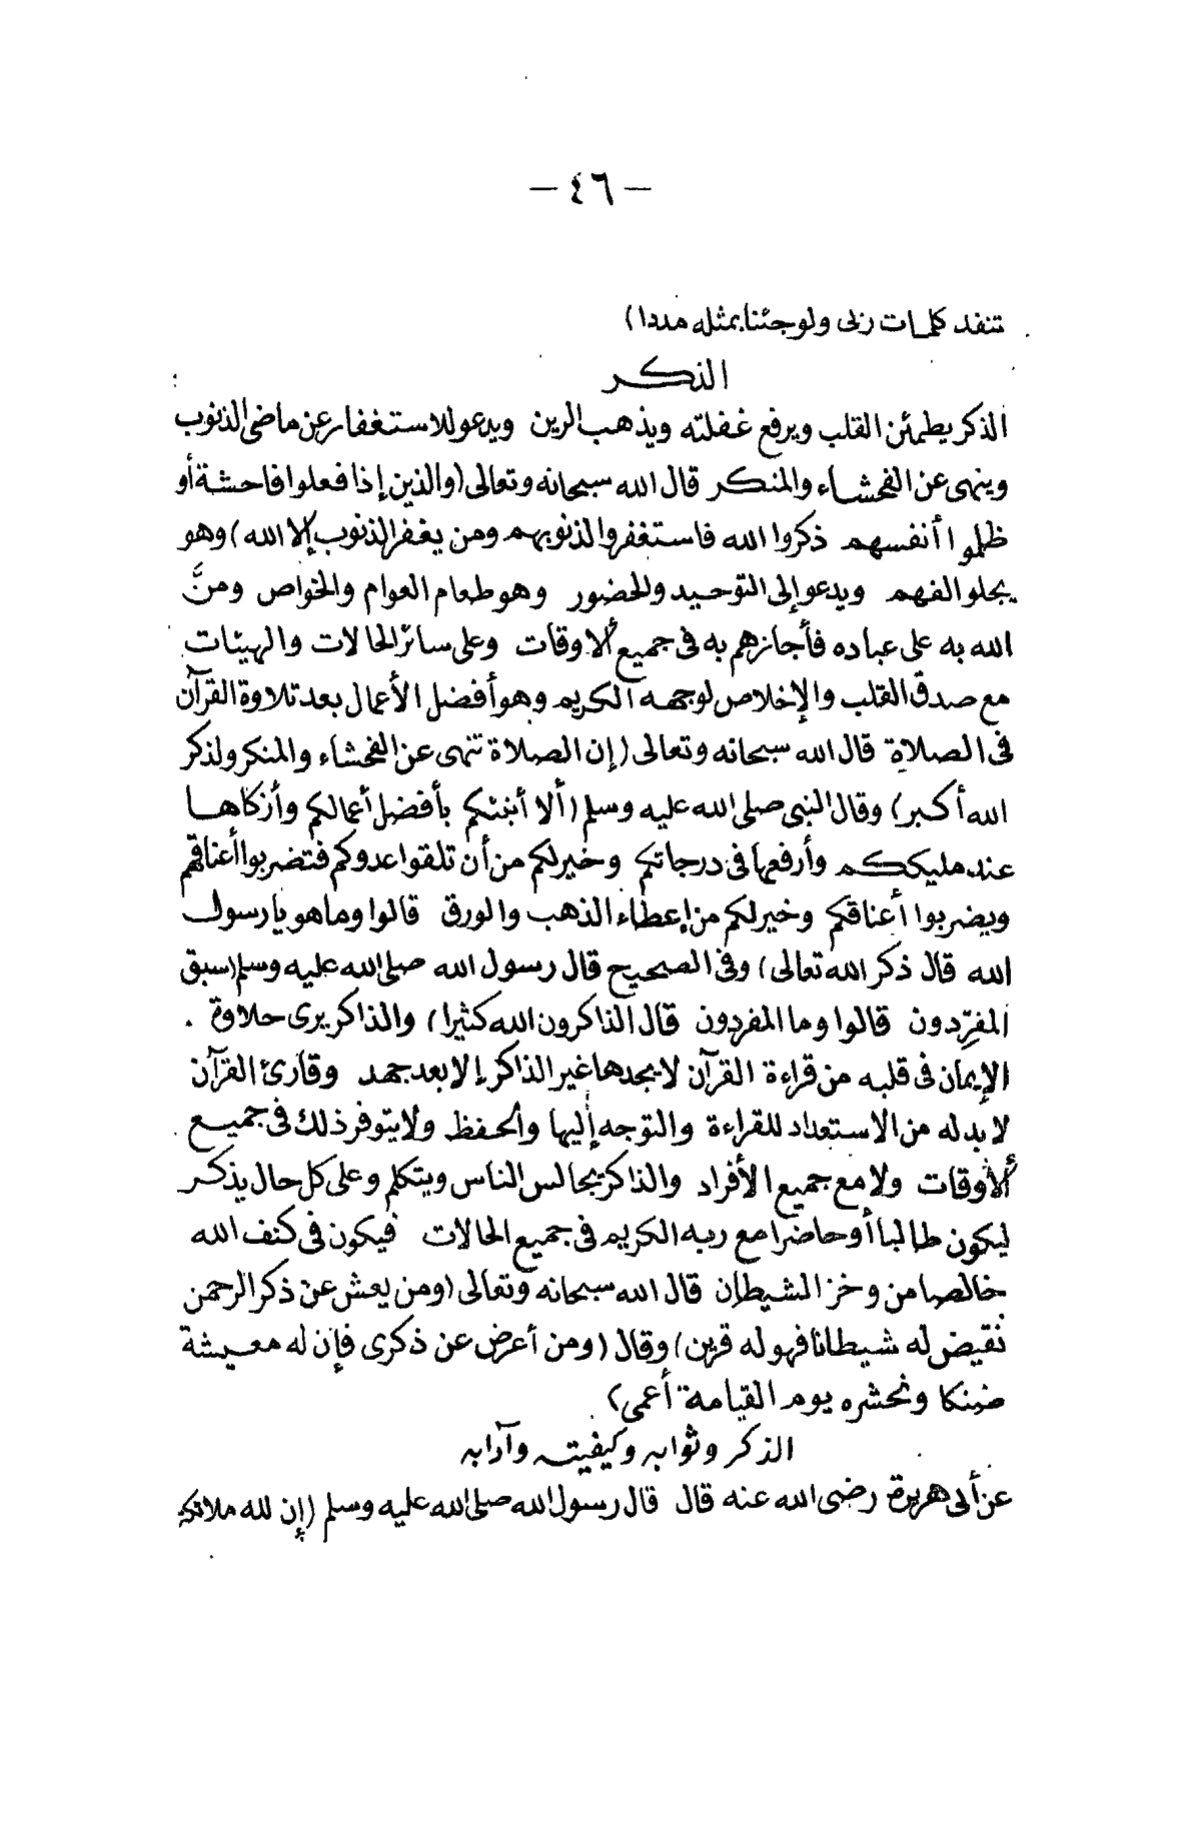 — ٤٦ —
تنفد كلمات ربى ولو جئنا بمثله مددا)
الذكر
الذكر يطمئن القلب ويرفع غفلته ويذهب الرين ويدعو للاستغفار عن ماضى الذنوب
وينهى عن الفحشاء والمنكر قال الله سبحانه وتعالى (والذين إذا فعلوا فاحشة أو
ظلموا أنفسهم ذكروا الله فاستغفروا لذنوبهم ومن يغفر الذنوب إلا الله) وهو
يجلو الفهم ويدعو إلى التوحيد والحضور وهو طعام العوام والخواص ومنَّ
الله به على عباده فأجازهم به فى جميع الأوقات وعلى سائر الحالات والهيئات
مع صدق القلب والإخلاص لوجهه الكريم وهو أفضل الأعمال بعد تلاوة القرآن
فى الصلاة قال الله سبحانه وتعالى (إن الصلاة تنهى عن الفحشاء والمنكر ولذكر
الله أكبر) وقال النبى صلى الله عليه وسلم (ألا أنبئكم بأفضل أعمالكم وأزكاها
عند مليككم وأرفعها فى درجاتكم وخير لكم من أن تلقوا عدوكم فتضربوا أعناقهم
ويضربوا أعناقكم وخير لكم من إعطاء الذهب والورق قالوا وما هو يا رسول
الله قال ذكر الله تعالى) وفى الصحيح قال رسول الله صلى الله عليه وسلم (سبق
المفرِّدون قالوا وما المفردون قال الذاكرون الله كثيرا) والذاكر يرى حلاوة
الإيمان فى قلبه من قراءة القرآن لا يجدها غير الذاكر إلا بعد جهد وقارئ القرآن
لا بد له من الاستعداد للقراءة والتوجه إليها والحفظ ولا يتوفر ذلك فى جميع
الأوقات ولا مع جميع الأفراد والذاكر يجالس الناس ويتكلم وعلى كل حال يذكر
ليكون طالبا أو حاضرا مع ربه الكريم فى جميع الحالات فيكون فى كنف الله
خالصا من وخز الشيطان قال الله سبحانه وتعالى (ومن يعش عن ذكر الرحمن
نقيض له شيطانا فهو له قرين) وقال (ومن أعرض عن ذكرى فإن له معيشة
ضنكا ونحشره يوم القيامة أعمى)
الذكر وثوابه وكيفيته وآدابه
عن أبى هريرة رضى الله عنه قال قال رسول الله صلى الله عليه وسلم (إن لله ملائكة